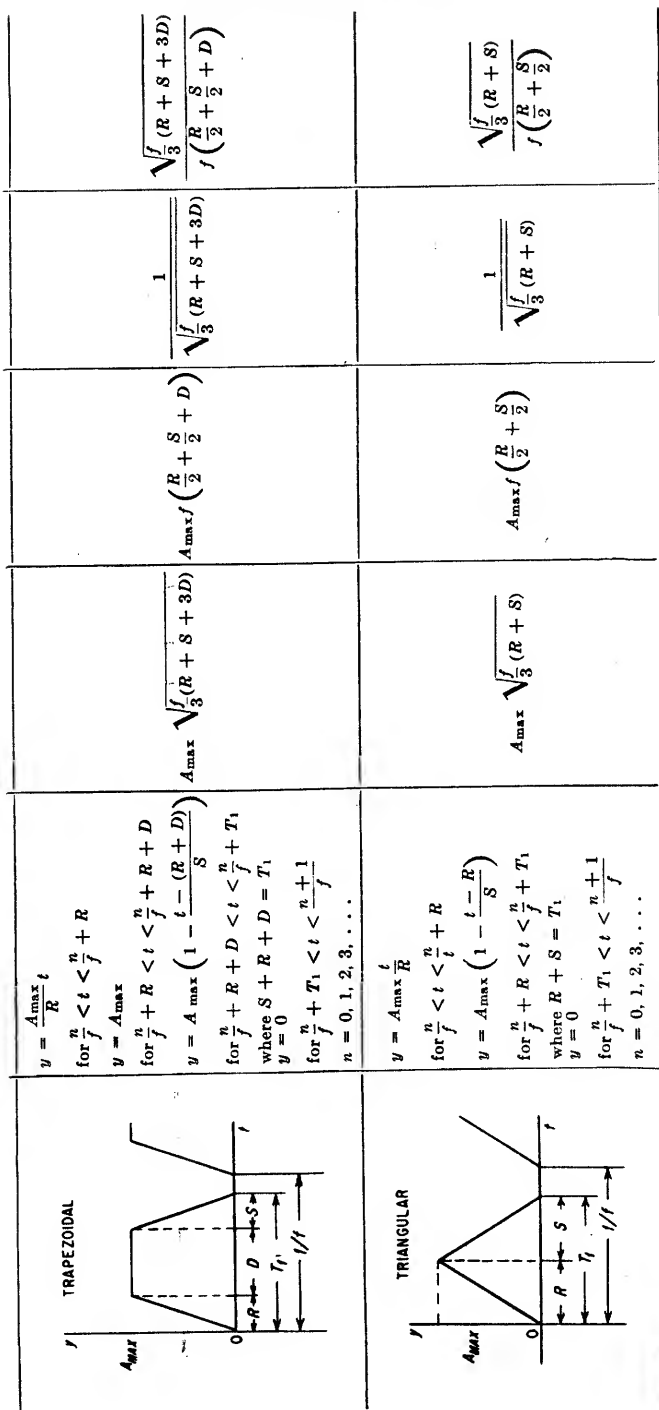 TRAPEZOIDAL
y
A_MAX
0
R
D
S
t
T_1
1/f
y = \frac{A_{max}}{R} t
for \frac{n}{f} < t < \frac{n}{f} + R
y = A_{max}
for \frac{n}{f} + R < t < \frac{n}{f} + R + D
y = A_{max} \left( 1 - \frac{t - (R + D)}{S} \right)
for \frac{n}{f} + R + D < t < \frac{n}{f} + T_1
where S + R + D = T_1
y = 0
for \frac{n}{f} + T_1 < t < \frac{n + 1}{f}
n = 0, 1, 2, 3, . . .
A_{max} \sqrt{\frac{f}{3} (R + S + 3D)}
A_{max} f \left( \frac{R}{2} + \frac{S}{2} + D \right)
\frac{1}{\sqrt{\frac{f}{3} (R + S + 3D)}}
\frac{\sqrt{\frac{f}{3} (R + S + 3D)}}{f \left( \frac{R}{2} + \frac{S}{2} + D \right)}
TRIANGULAR
y
A_MAX
0
R
S
t
T_1
1/f
y = A_{max} \frac{t}{R}
for \frac{n}{f} < t < \frac{n}{t} + R
y = A_{max} \left( 1 - \frac{t - R}{S} \right)
for \frac{n}{f} + R < t < \frac{n}{f} + T_1
where R + S = T_1
y = 0
for \frac{n}{f} + T_1 < t < \frac{n + 1}{f}
n = 0, 1, 2, 3, . . .
A_{max} \sqrt{\frac{f}{3} (R + S)}
A_{max} f \left( \frac{R}{2} + \frac{S}{2} \right)
\frac{1}{\sqrt{\frac{f}{3} (R + S)}}
\frac{\sqrt{\frac{f}{3} (R + S)}}{f \left( \frac{R}{2} + \frac{S}{2} \right)}